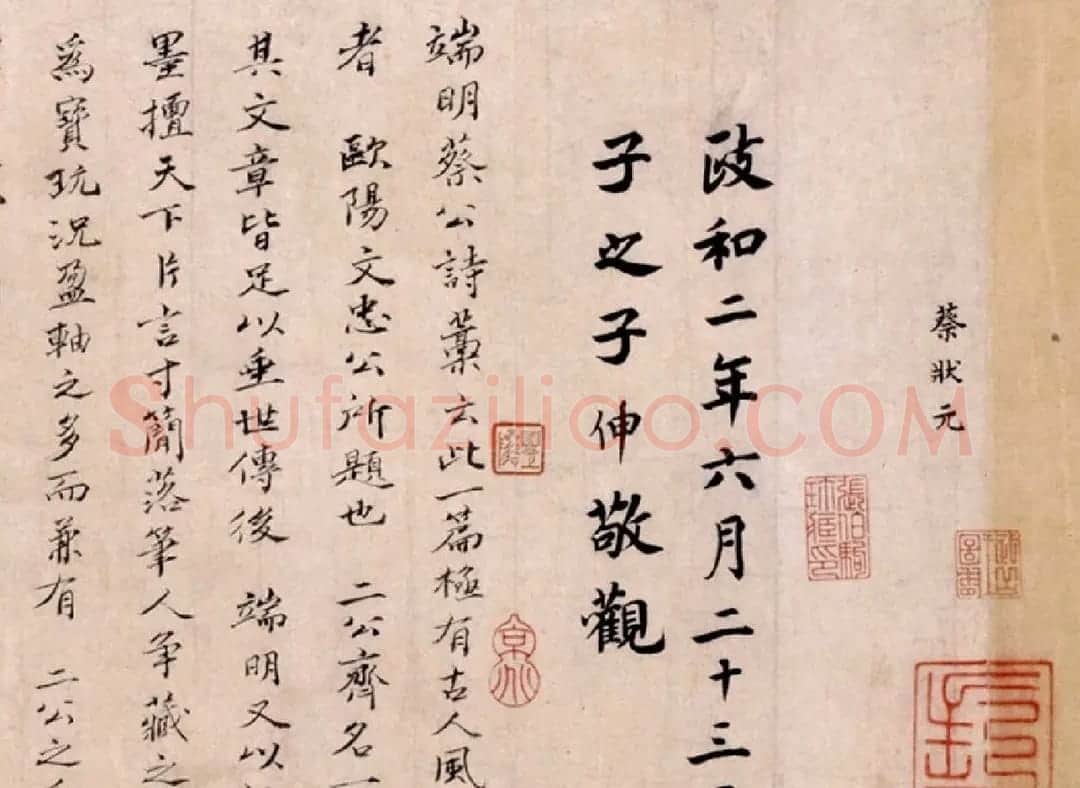 蔡狀元
政和二年六月二十三
子之子伸敬觀
端明蔡公詩藁云此一篇極有古人風
者 歐陽文忠公所題也 二公齊名一
其文章皆足以垂世傳後 端明又以
墨擅天下片言寸簡落筆人爭藏之
為寶玩況盈軸之多而兼有 二公之
張伯駒珍藏印
Shufaziliao.COM